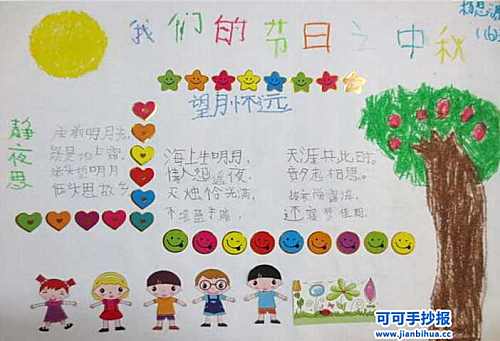 我们的节日之中秋
望月怀远
静夜思
床前明月光,
疑是地上霜。
举头望明月
低头思故乡
海上生明月,
情人怨遥夜,
灭烛怜光满,
天涯共此时。
竟夕起相思。
披衣觉露滋,
还寝梦佳期。
可可手抄报
www.jianbihua.cc